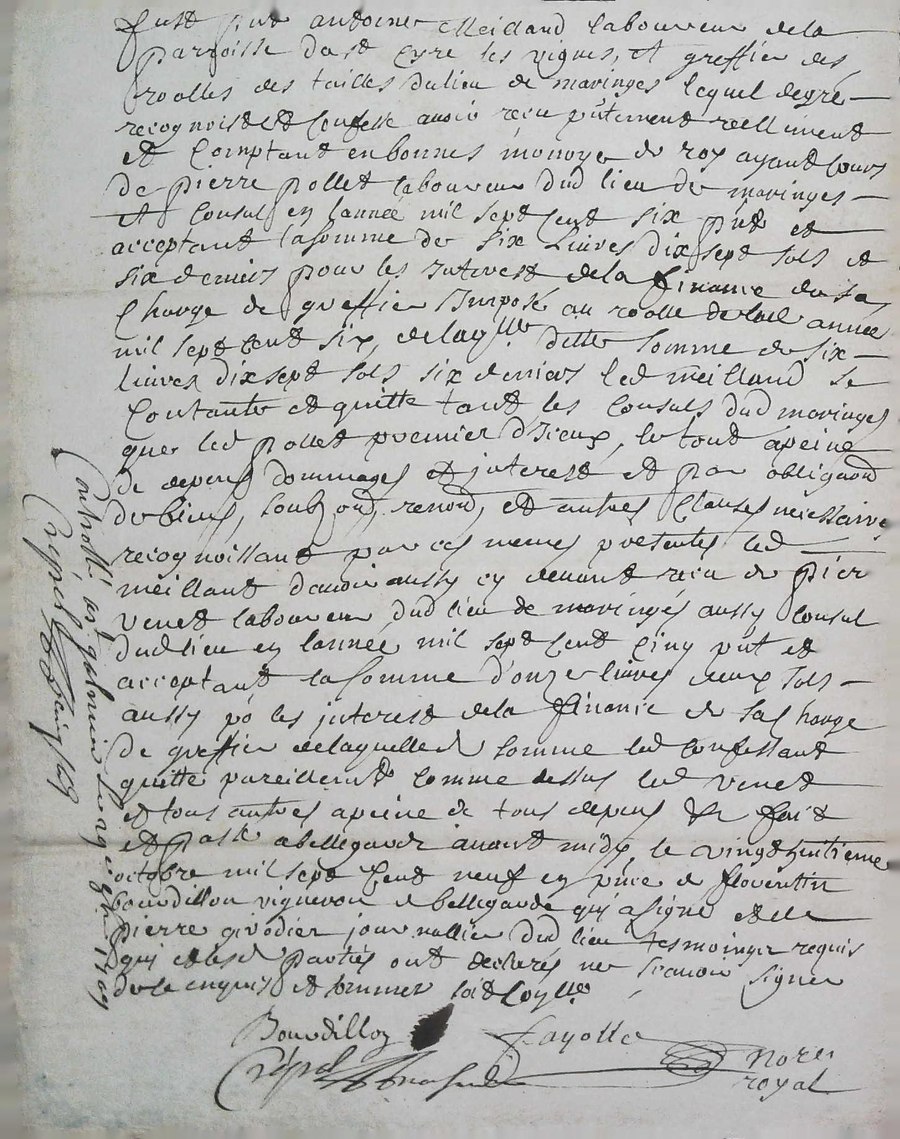 fust pnt antoine Meilland laboureur de la
parroisse de st Cyre les vignes, et greffier des
roolles des tailles du lieu de maringes lequel de gré
recognoist et confesse avoir receu pntement reellement
et comptant en bonnes monoye de roy ayant cours
de pierre pollet laboureur dud lieu de maringes
et consul en lannée mil sept cent six pnt et
acceptant la somme de six livres dix sept sols et
six deniers pour les interest de la finance de sa
charge de greffier imposé au roolle de lad année
mil sept cent six, de laqlle ditte somme de six
livres dix sept sols six deniers led meilland se
contante et quitte tant les consuls dud maringes
que led pollet premier d'iceux, le tout a peine
de depens dommages et interest et par obligaon
de biens, soubz on, renon, et autres clauses necessaire
recognoissant par ces memes presentes led
meillant d'avoir aussy cy devant receu de pier
venet laboureur dud lieu de maringes aussy consul
dud lieu en lannée mil sept cent cinq pnt et
acceptant la somme d'onze livres deux sols
aussy po les interest de la finance de sa charge
de greffier de laquelle d somme led confessant
quitte pareillemt comme dessus led venet
et tous autres a peine de tous depens &c fait
et passé a bellegarde avant midy le vingt huitieme
octobre mil sept cent neuf en pnce de florentin
bourdillon vigneron de bellegarde qui a signé et de
pierre girodier journallier dud lieu tesmoings requis
qui et lesd parties ont declarés ne scavoir signer
de ce enquis et sommer soit coylle
Bourdillon fayolle
Crépet nore
royal
Controllé a st galmier le 1709
Crépet